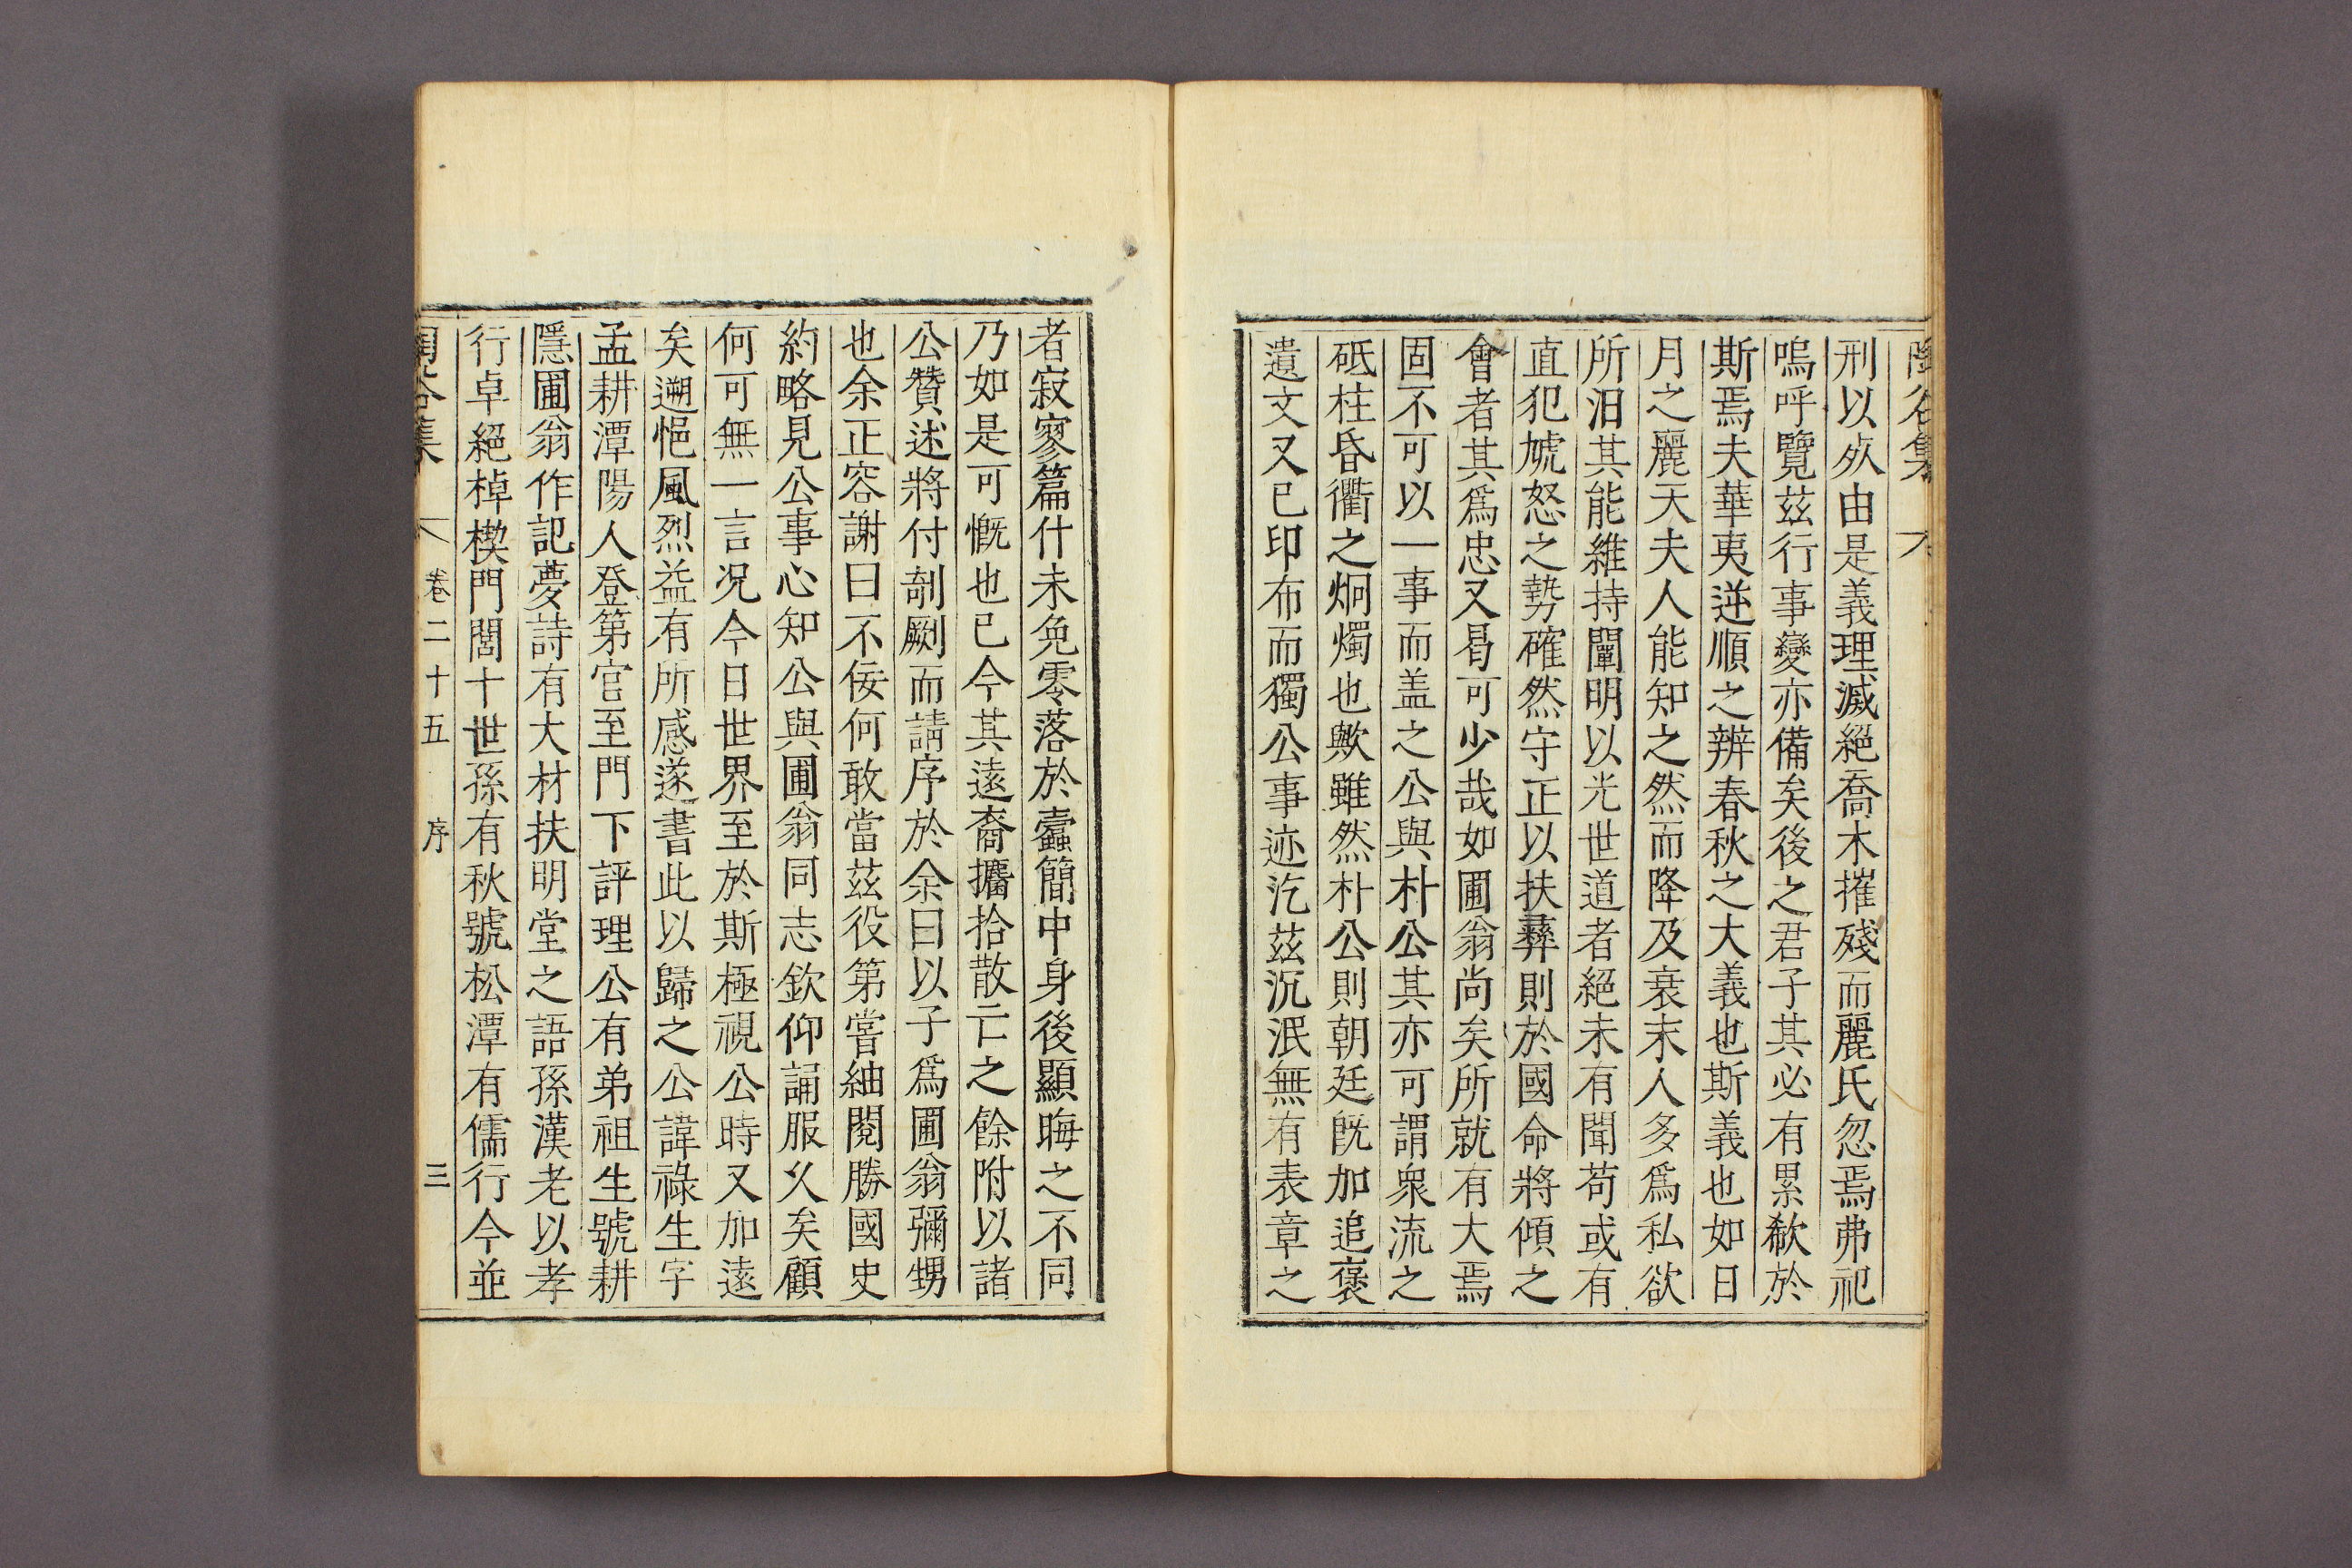 刑以歿由是義理滅絕喬木摧殘而麗氏忽焉弗祀
嗚呼覽茲行事變亦備矣後之君子其必有累欷於
斯焉夫華夷逆順之辨春秋之大義也斯義也如日
月之麗天夫人能知之然而降及衰末人多爲私欲
所汨其能維持闡明以光世道者絕未有聞苟或有
直犯虓怒之勢確然守正以扶彛則於國命將傾之
會者其爲忠又曷可少哉如圃翁尙矣所就有大焉
固不可以一事而盖之公與朴公其亦可謂衆流之
砥柱昏衢之炯燭也歟雖然朴公則朝廷旣加追褒
遺文又已印布而獨公事迹汔茲沉泯無有表章之
者寂寥篇什未免零落於蠧簡中身後顯晦之不同
乃如是可慨也已今其遠裔攟拾散亡之餘附以諸
公贊述將付剞劂而請序於余曰以子爲圃翁彌甥
也余正容謝曰不佞何敢當茲役第嘗紬閱勝國史
約略見公事心知公與圃翁同志欽仰誦服久矣顧
何可無一言况今日世界至於斯極視公時又加遠
矣遡悒風烈益有所感遂書此以歸之公諱祿生字
孟耕潭陽人登第官至門下評理公有弟祖生號耕
隱圃翁作記夢詩有大材扶明堂之語孫漢老以孝
行卓絕棹楔門閭十世孫有秋號松潭有儒行今並
集 卷二十五 序 三